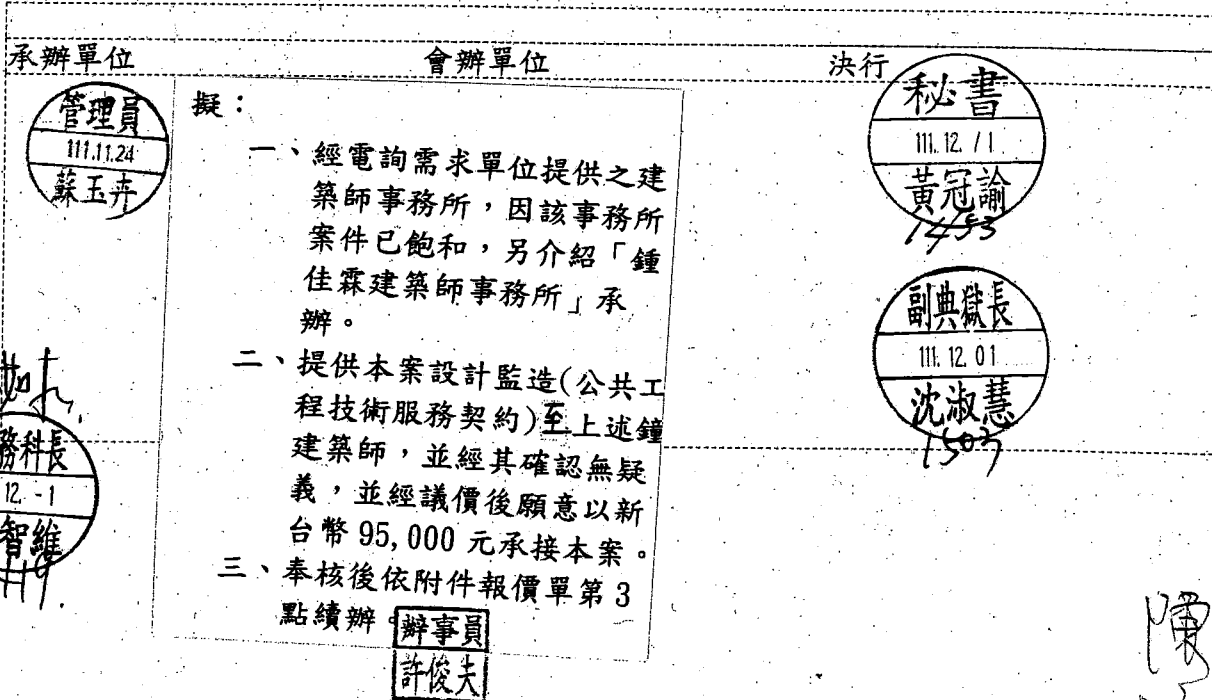 承辦單位
會辦單位
決行
管理員
111.11.24
蘇玉卉
擬：
一、經電詢需求單位提供之建
築師事務所，因該事務所
案件已飽和，另介紹「鍾
佳霖建築師事務所」承
辦。
二、提供本案設計監造(公共工
程技術服務契約)至上述鐘
建築師，並經其確認無疑
義，並經議價後願意以新
台幣 95,000 元承接本案。
三、奉核後依附件報價單第 3
點續辦。
辦事員
許俊夫
務科長
12. -1
智維
秘書
111. 12. /1
黃冠諭
1453
副典獄長
111. 12. 01
沈淑慧
1503